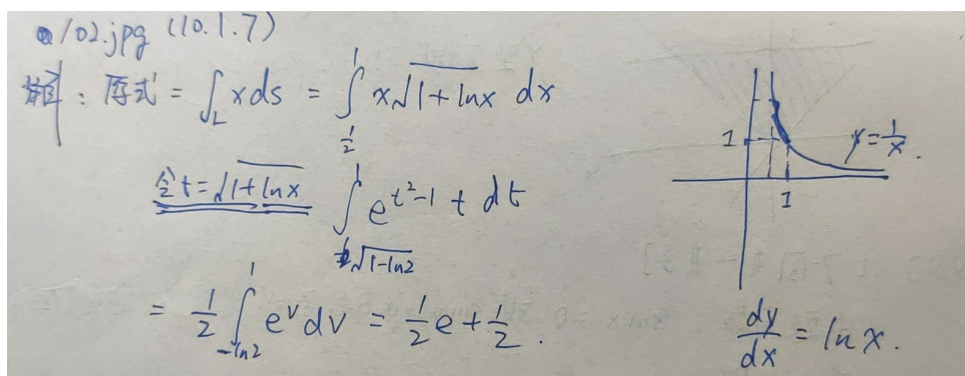 102.jpg (10.1.7)
解：原式 = ∫_L x ds = ∫_{1/2}^{1} x√(1+lnx) dx
令 t=√(1+lnx) ∫_{√(1-ln2)}^{1} e^{t²-1} t dt
= 1/2 ∫_{-ln2}^{1} e^v dv = 1/2 e + 1/2 .
1
y = 1/x .
1
dy/dx = ln x .